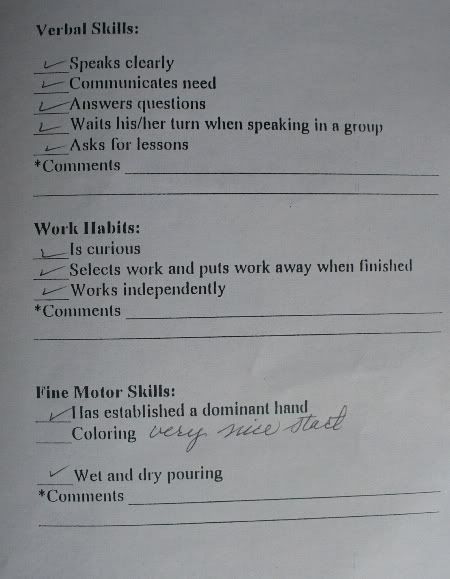 Verbal Skills:
✓ Speaks clearly
✓ Communicates need
✓ Answers questions
✓ Waits his/her turn when speaking in a group
✓ Asks for lessons
*Comments
Work Habits:
✓ Is curious
✓ Selects work and puts work away when finished
✓ Works independently
*Comments
Fine Motor Skills:
✓ Has established a dominant hand
Coloring very nice start
✓ Wet and dry pouring
*Comments